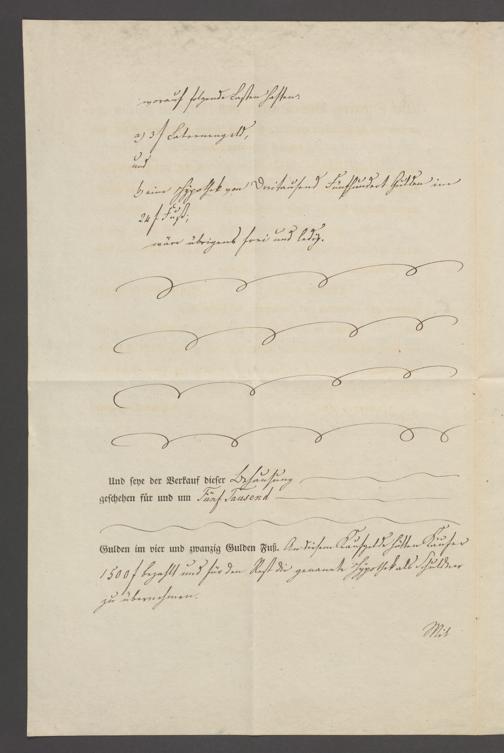 worauf folgende Lasten haften:
a) 3 f Laternengeld,
und
b) eine Hypothek von Dreitausend Fünfhundert Gulden im
24 f Fuß;
wäre übrigens frei und ledig.
Und seye der Verkauf dieser Behausung
geschehen für und um Fünf Tausend
Gulden im vier und zwanzig Gulden Fuß. An diesem Kaufgelde hätten Käufer
1500 f bezahlt und für den Rest die genannte Hypothek als Schuldner
zu übernehmen.
Mit